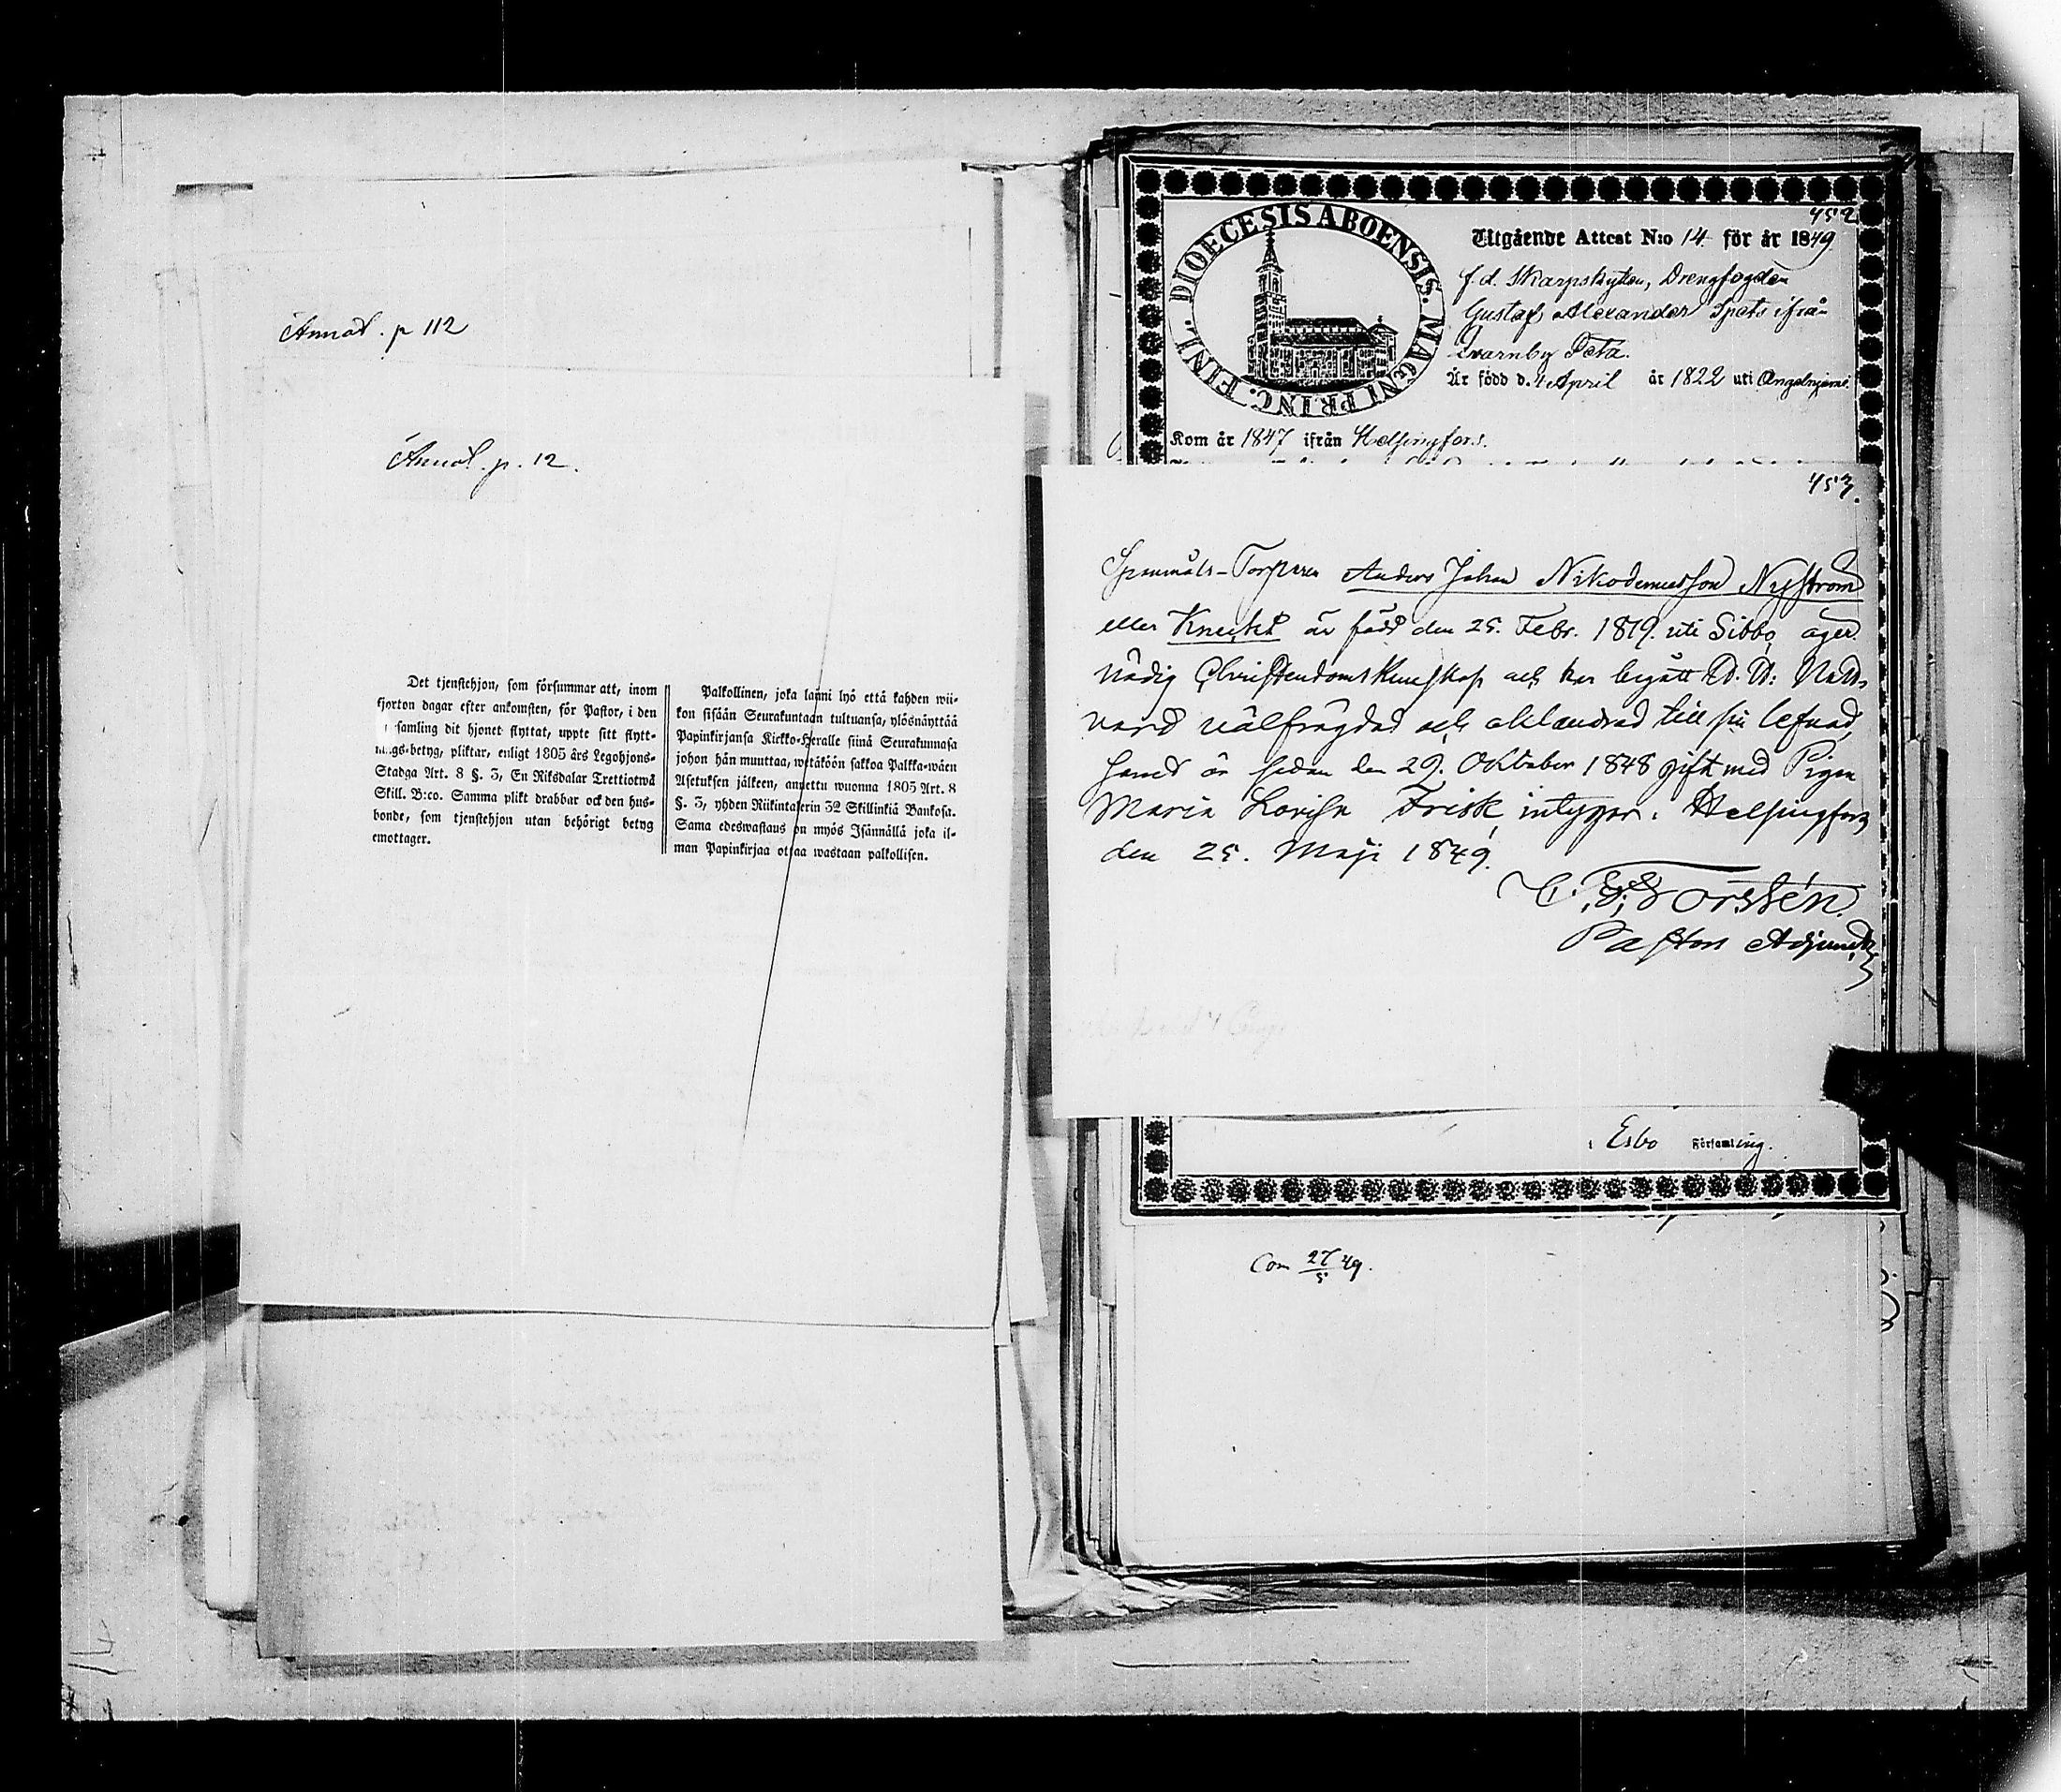 Annot. p 112
Annot. p. 12.
Det tjenstehjon, som försummar att, inom
fjorton dagar efter ankomsten, för Pastor, i den
samling dit hjonet flyttat, uppte sitt flytt-
ngs-betyg, pliktar, enligt 1805 års Legohjons-
Stadga Art. 8 §. 3, En Riksdalar Trettiotwå
Skill. B:co. Samma plikt drabbar ock den hus-
bonde, som tjenstehjon utan behörigt betyg
emottager.
Palkollinen, joka laimi lyö että kahden wii-
kon sisään Seurakuntaan tultuansa, ylösnäyttää
Papinkirjansa Kirkko-Herralle siinä Seurakunnasa
johon hän muuttaa, wetäköön sakkoa Palkka-wäen
Asetuksen jälkeen, annettu wuonna 1805 Art. 8
§. 3, yhden Riikintalerin 32 Skillinkiä Bankosa.
Sama edeswastaus on myös Isännällä joka il-
man Papinkirjaa ottaa wastaan palkollisen.
452
DIOECESIS ABOENSIS. MAGNI PRINC. FINL.
Utgående Attest N:o 14 för år 1849.
f. d. Skarpskytten, Drengfogden
Gustaf Alexander Spets ifrån
Qvarnby Peta.
Är född d. 4 April år 1822 uti Angelniemi.
Kom år 1847 ifrån Helsingfors.
453.
Spanmåls-Torparen Anders Johan Nikodemusson Nyström
eller Knecktet är född den 25. Febr. 1819. uti Sibbo, äger
nödig Christendoms Kunskap och har begått H. H. Natt-
vard välfrägdad och oklandrad till sin lefnad,
samt är sedan den 29. Oktober 1848 gift med Pigan
Maria Lovisa Frisk, intygar. Helsingfors
den 25. Maji 1849.
Forstén.
Pastors Adjunct.
i Esbo Församling.
Com 27/5 49.